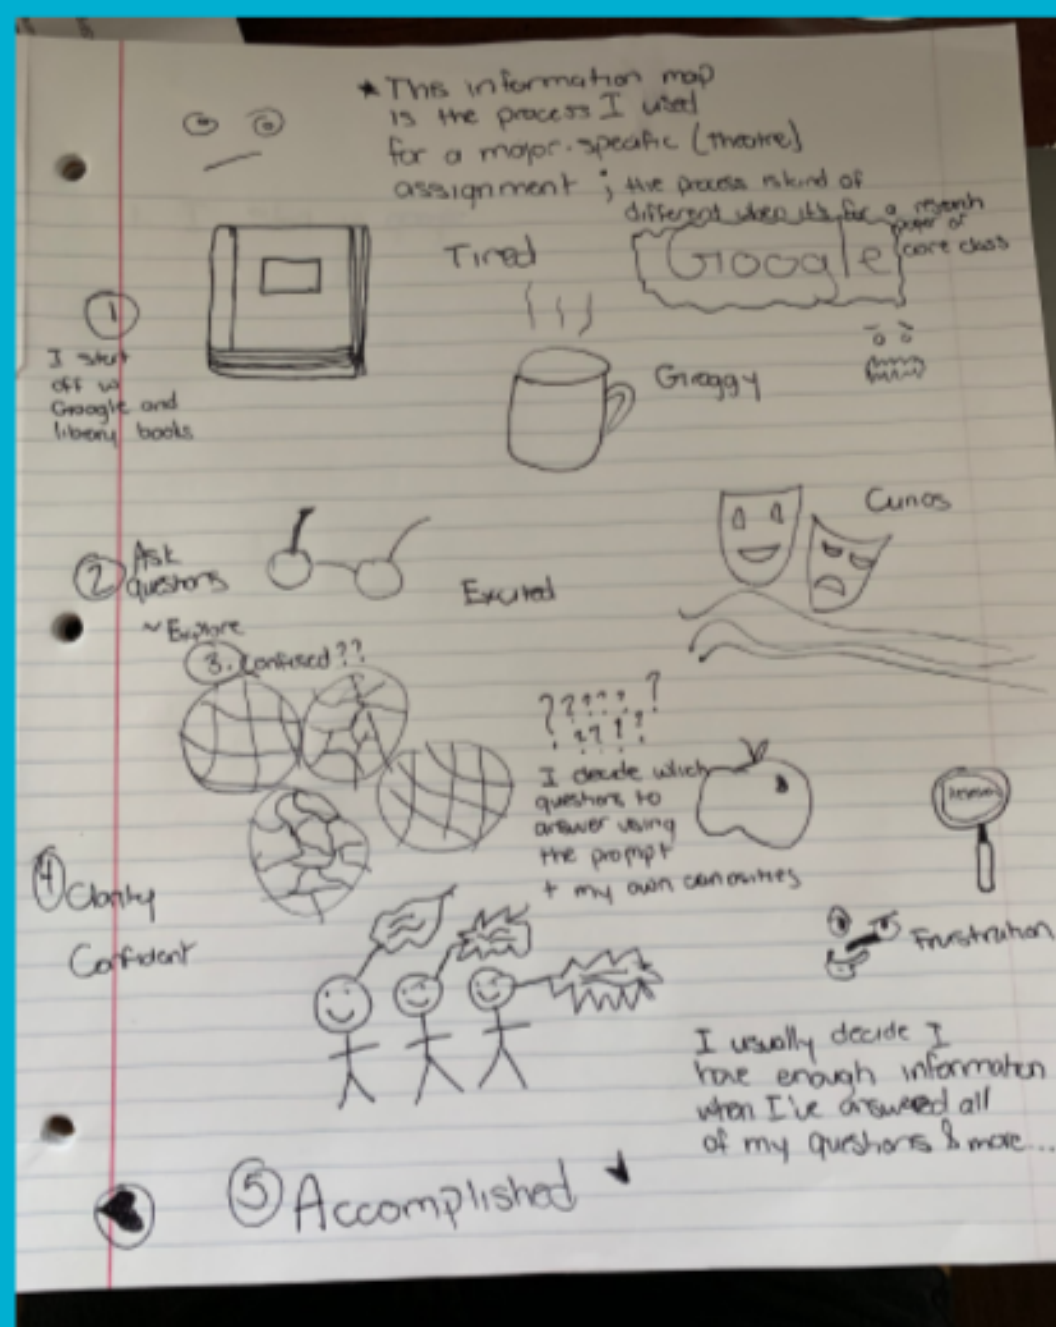 * This information map
is the process I used
for a major-specific (Theatre)
assignment ; the process is kind of
different when it's for a research
paper or
core class
Tired
Google
1
I start
off w
Google and
library books
Groggy
Curios
2 Ask
questions
~ Explore
Excited
3. Confused??
????????
?????
I decide which
questions to
answer using
the prompt
+ my own curiosities
4 Clarity
Confident
Frustration
I usually decide I
have enough information
when I've answered all
of my questions & more...
5 Accomplished